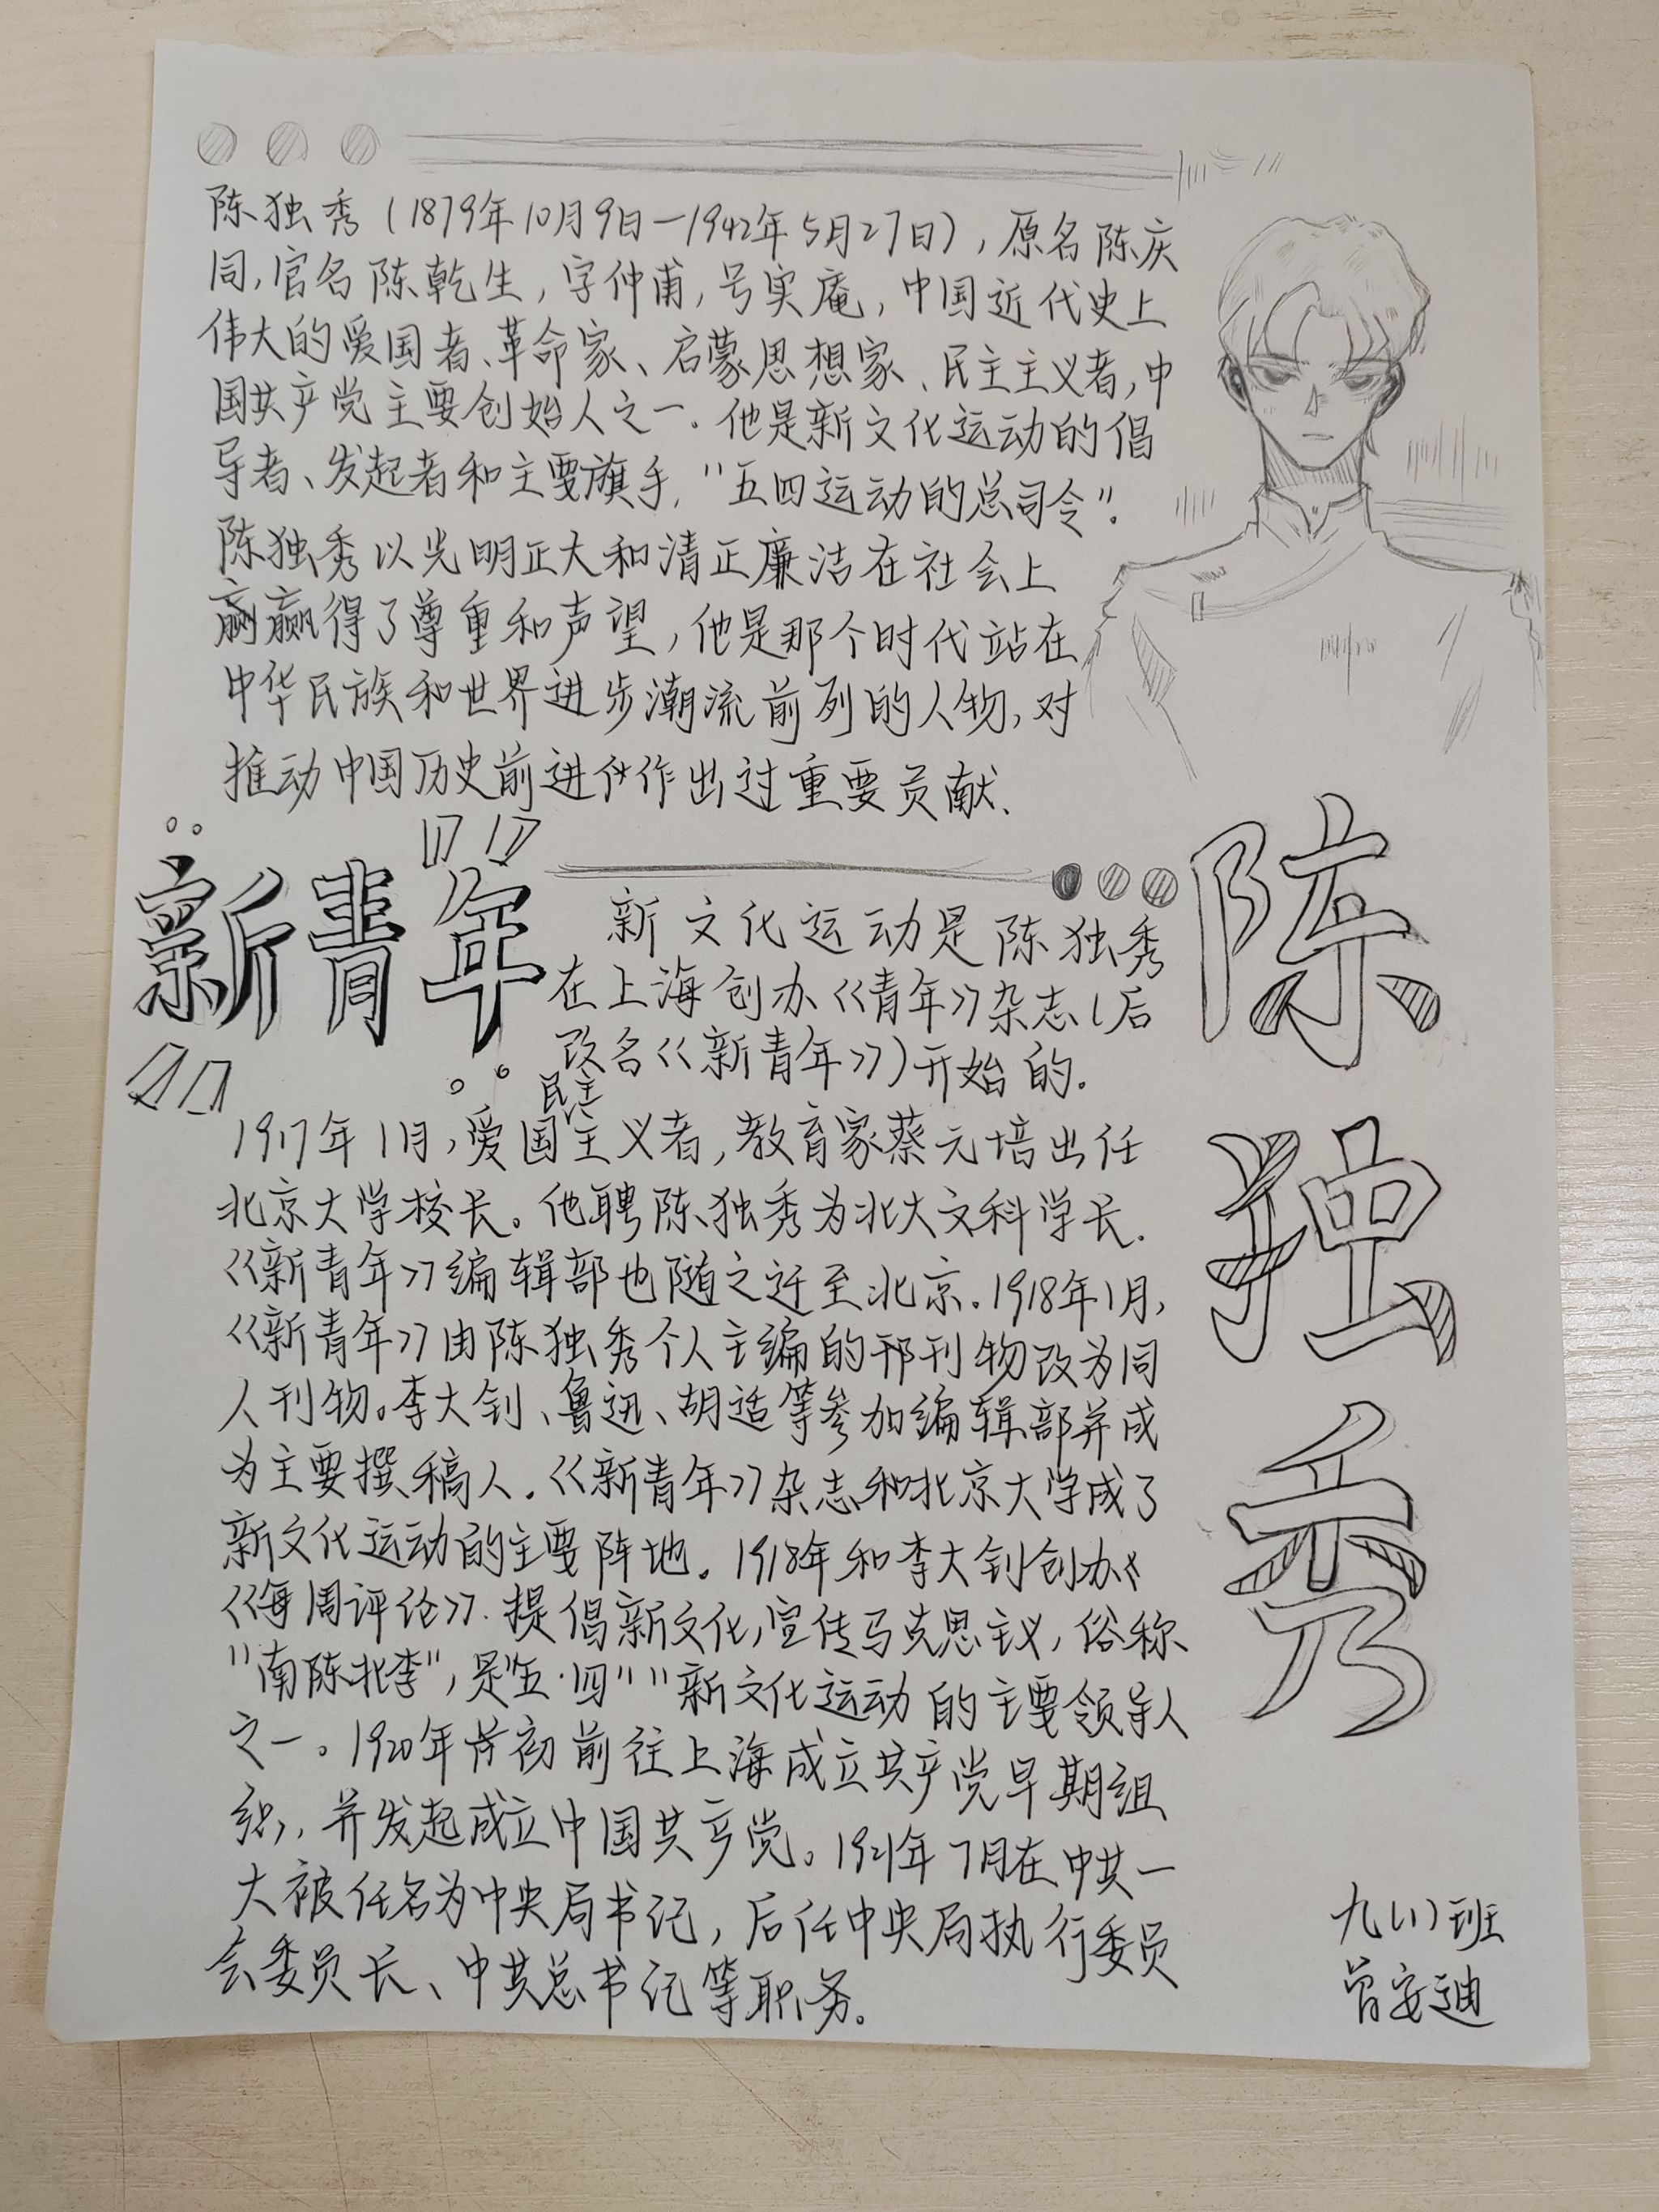 陈独秀（1879年10月9日—1942年5月27日），原名陈庆
同，官名陈乾生，字仲甫，号实庵，中国近代史上
伟大的爱国者、革命家、启蒙思想家、民主主义者，中
国共产党主要创始人之一。他是新文化运动的倡
导者、发起者和主要旗手，"五四运动的总司令"。
陈独秀以光明正大和清正廉洁在社会上
赢得了尊重和声望，他是那个时代站在
中华民族和世界进步潮流前列的人物，对
推动中国历史前进作出过重要贡献、
新青年
新文化运动是陈独秀
在上海创办《青年》杂志（后
改名《新青年》）开始的.
民主
1917年1月，爱国主义者，教育家蔡元培出任
北京大学校长。他聘陈独秀为北大文科学长.
《新青年》编辑部也随之迁至北京.1918年1月，
《新青年》由陈独秀个人主编的刊物改为同
人刊物。李大钊、鲁迅、胡适等参加编辑部并成
为主要撰稿人.《新青年》杂志和北京大学成了
新文化运动的主要阵地。1918年和李大钊创办
《每周评论》.提倡新文化，宣传马克思主义，俗称
"南陈北李"，是"五·四""新文化运动的主要领导人
之一。1920年初前往上海成立共产党早期组
织，并发起成立中国共产党。1921年7月在中共一
大被任名为中央局书记，后任中央局执行委员
会委员长、中共总书记等职务。
陈
独
秀
九（1）班
曾安迪